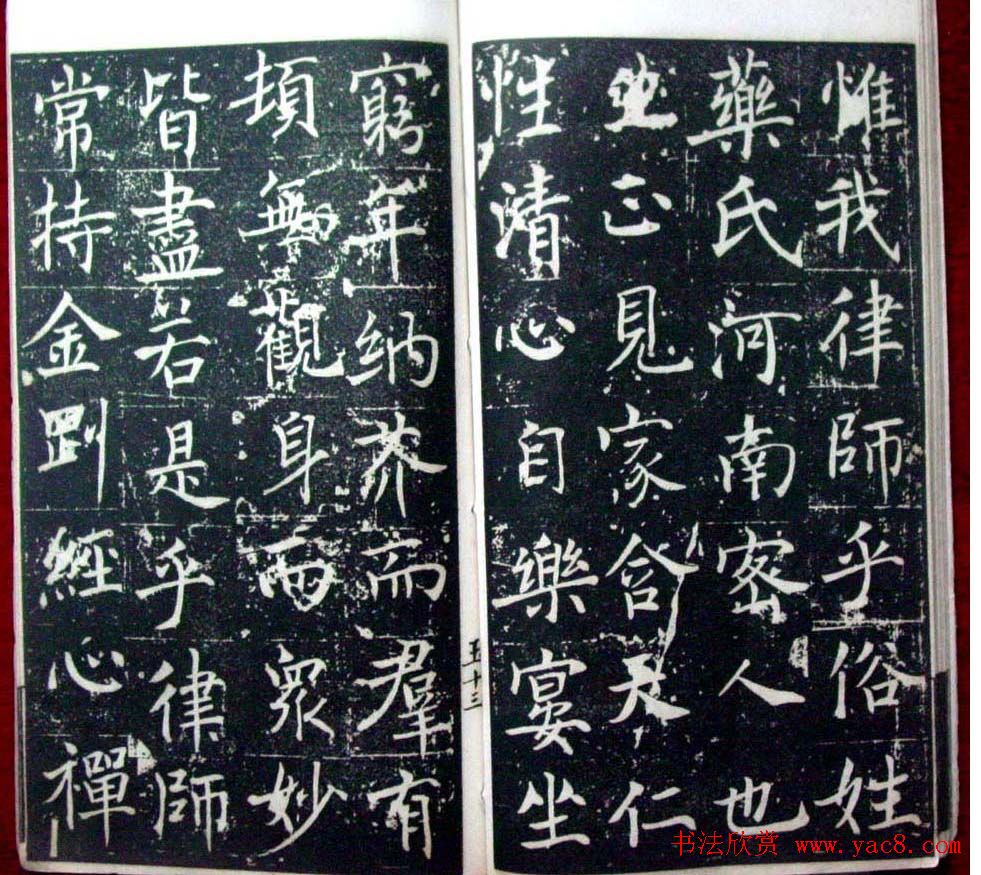 惟我律師乎俗姓
藥氏河南密人也
生正見家含天仁
性清心自樂宴坐
窮年納芥而羣有
頃無觀身而眾妙
皆盡若是乎律師
常持金剛經心禪
五十三
书法欣赏 www.yac8.com